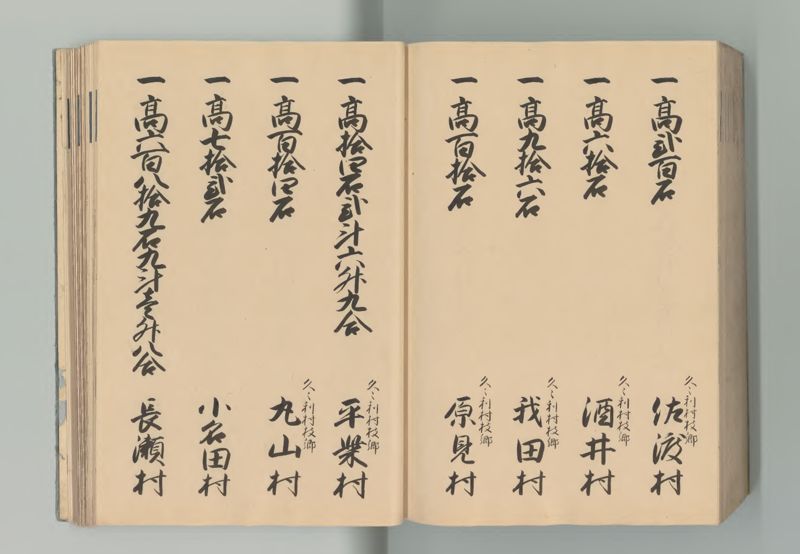 一高弐百石
久々利村枝郷
佐渡村
一高六拾石
久々利村枝郷
酒井村
一高九拾六石
久々利村枝郷
我田村
一高百拾石
久々利村枝郷
原見村
一高拾四石弐斗六升九合
久々利村枝郷
平柴村
一高百拾四石
久々利村枝郷
丸山村
一高七拾弐石
小名田村
一高六百八拾九石九斗壱升八合
長瀬村